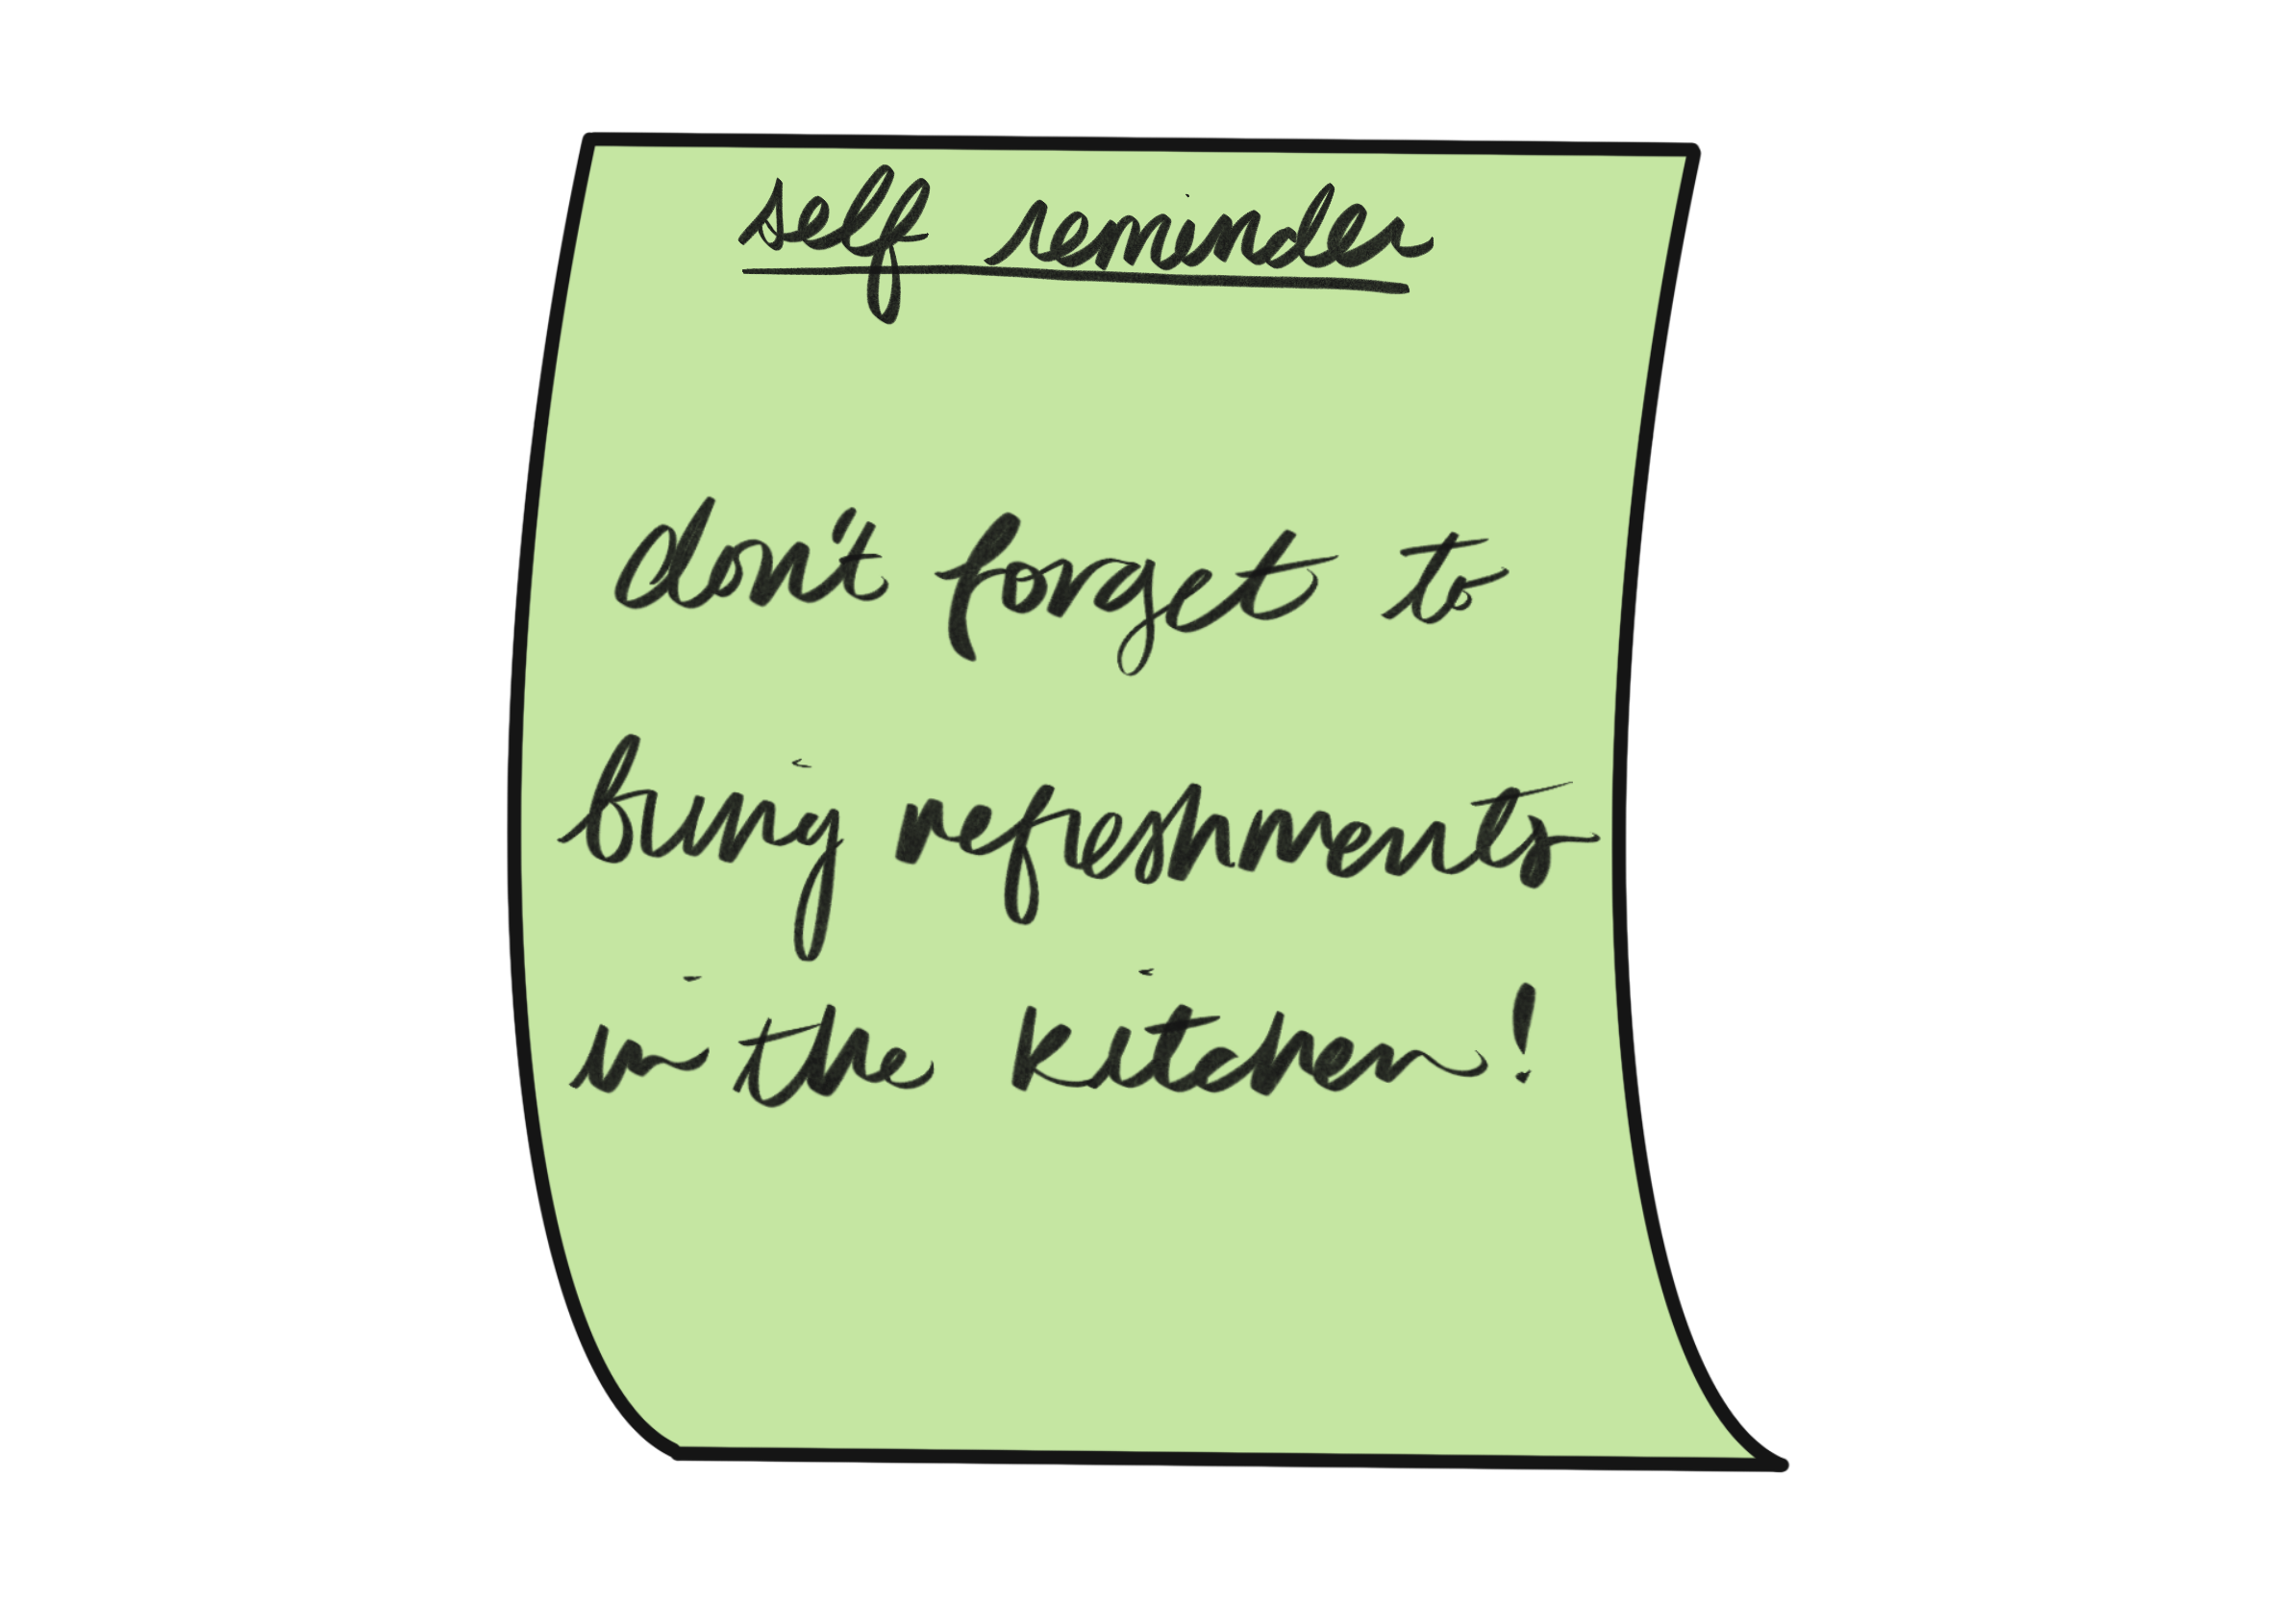 self reminder
don't forget to
bring refreshments
in the kitchen!